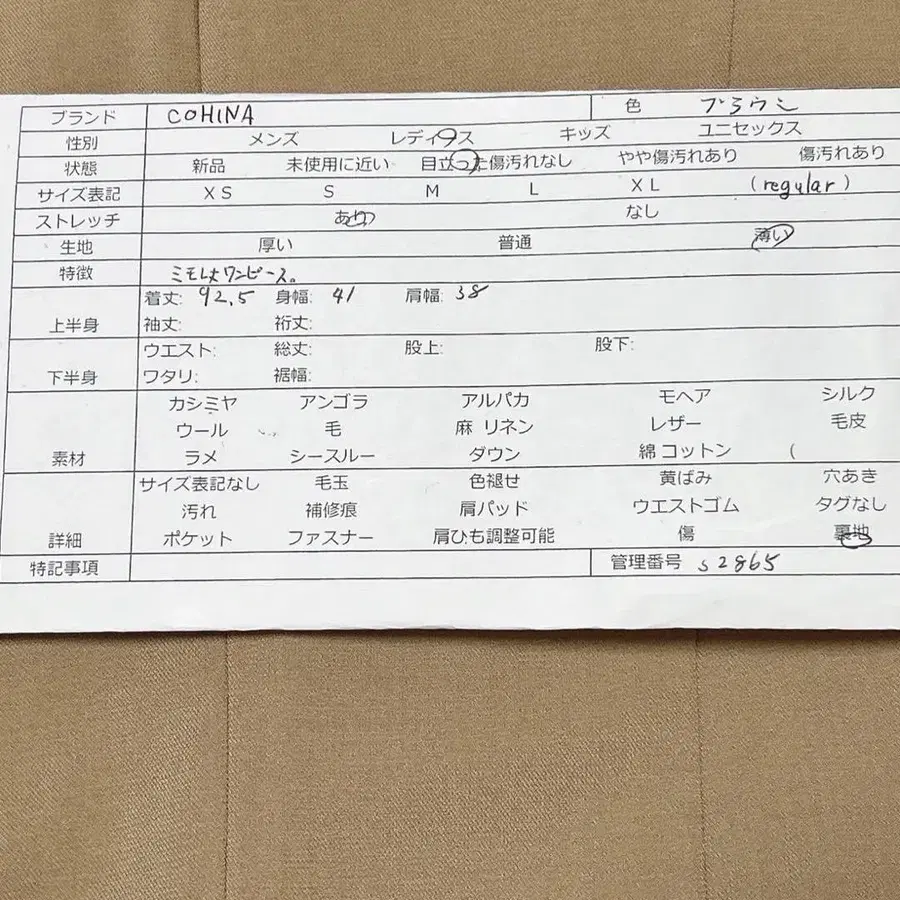 ブランド COHINA 色 ブラウン
性別 メンズ レディース キッズ ユニセックス
状態 新品 未使用に近い 目立った傷汚れなし やや傷汚れあり 傷汚れあり
サイズ表記 XS S M L XL (regular)
ストレッチ あり なし
生地 厚い 普通 薄い
特徴 ミモレ丈ワンピース。
上半身 着丈: 92.5 身幅: 41 肩幅: 38
袖丈: 裄丈:
下半身 ウエスト: 総丈: 股上: 股下:
ワタリ: 裾幅:
素材 カシミヤ アンゴラ アルパカ モヘア シルク
ウール 毛 麻 リネン レザー 毛皮
ラメ シースルー ダウン 綿 コットン (
詳細 サイズ表記なし 毛玉 色褪せ 黄ばみ 穴あき
汚れ 補修痕 肩パッド ウエストゴム タグなし
ポケット ファスナー 肩ひも調整可能 傷 裏地
特記事項 管理番号 s2865